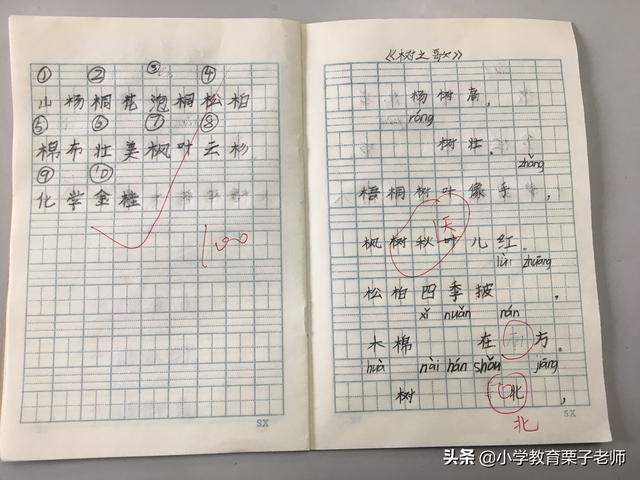 ① ② ③ ④
山 杨 桐 花 泡 桐 松 柏
⑤ ⑥ ⑦ ⑧
棉 布 壮 美 枫 叶 云 杉
⑨ ⑩
化 学 金 桂
100
SX
《树之歌》
杨 树 高 ,
róng
树 壮 .
zhǎng
梧 桐 树 叶 像 手 ,
枫 树 秋 天 叶 儿 红 .
zhuāng
松 柏 四 季 披 .
xǐ nuǎn nán
木 棉 在 方 .
huà nài hán shǒu jiāng
树 北 ,
北
SX
头条 @小学教育栗子老师